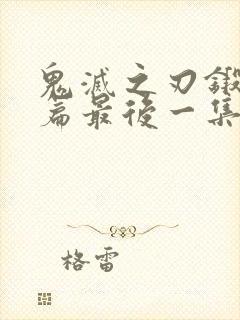 鬼滅之刃鍛
篇最後一集
格雷